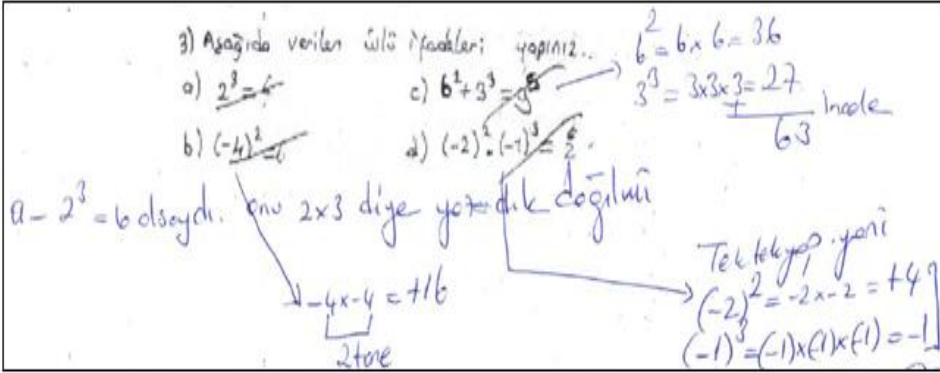 3) Aşağıda verilen üslü ifadeleri yapınız..
a) 2³ = 6
c) 6² + 3³ = 9⁵
b) (-4)²
d) (-2)² . (-1)³ =
6² = 6 x 6 = 36
3³ = 3x3x3 = 27
+
63 incele
a - 2³ = 6 olsaydı. onu 2x3 diye yazardık değilmi
-4x-4 = +16
2 tane
Tek tek yap. yani
(-2)² = -2 x -2 = +4
(-1)³ = (-1)x(-1)x(-1) = -1